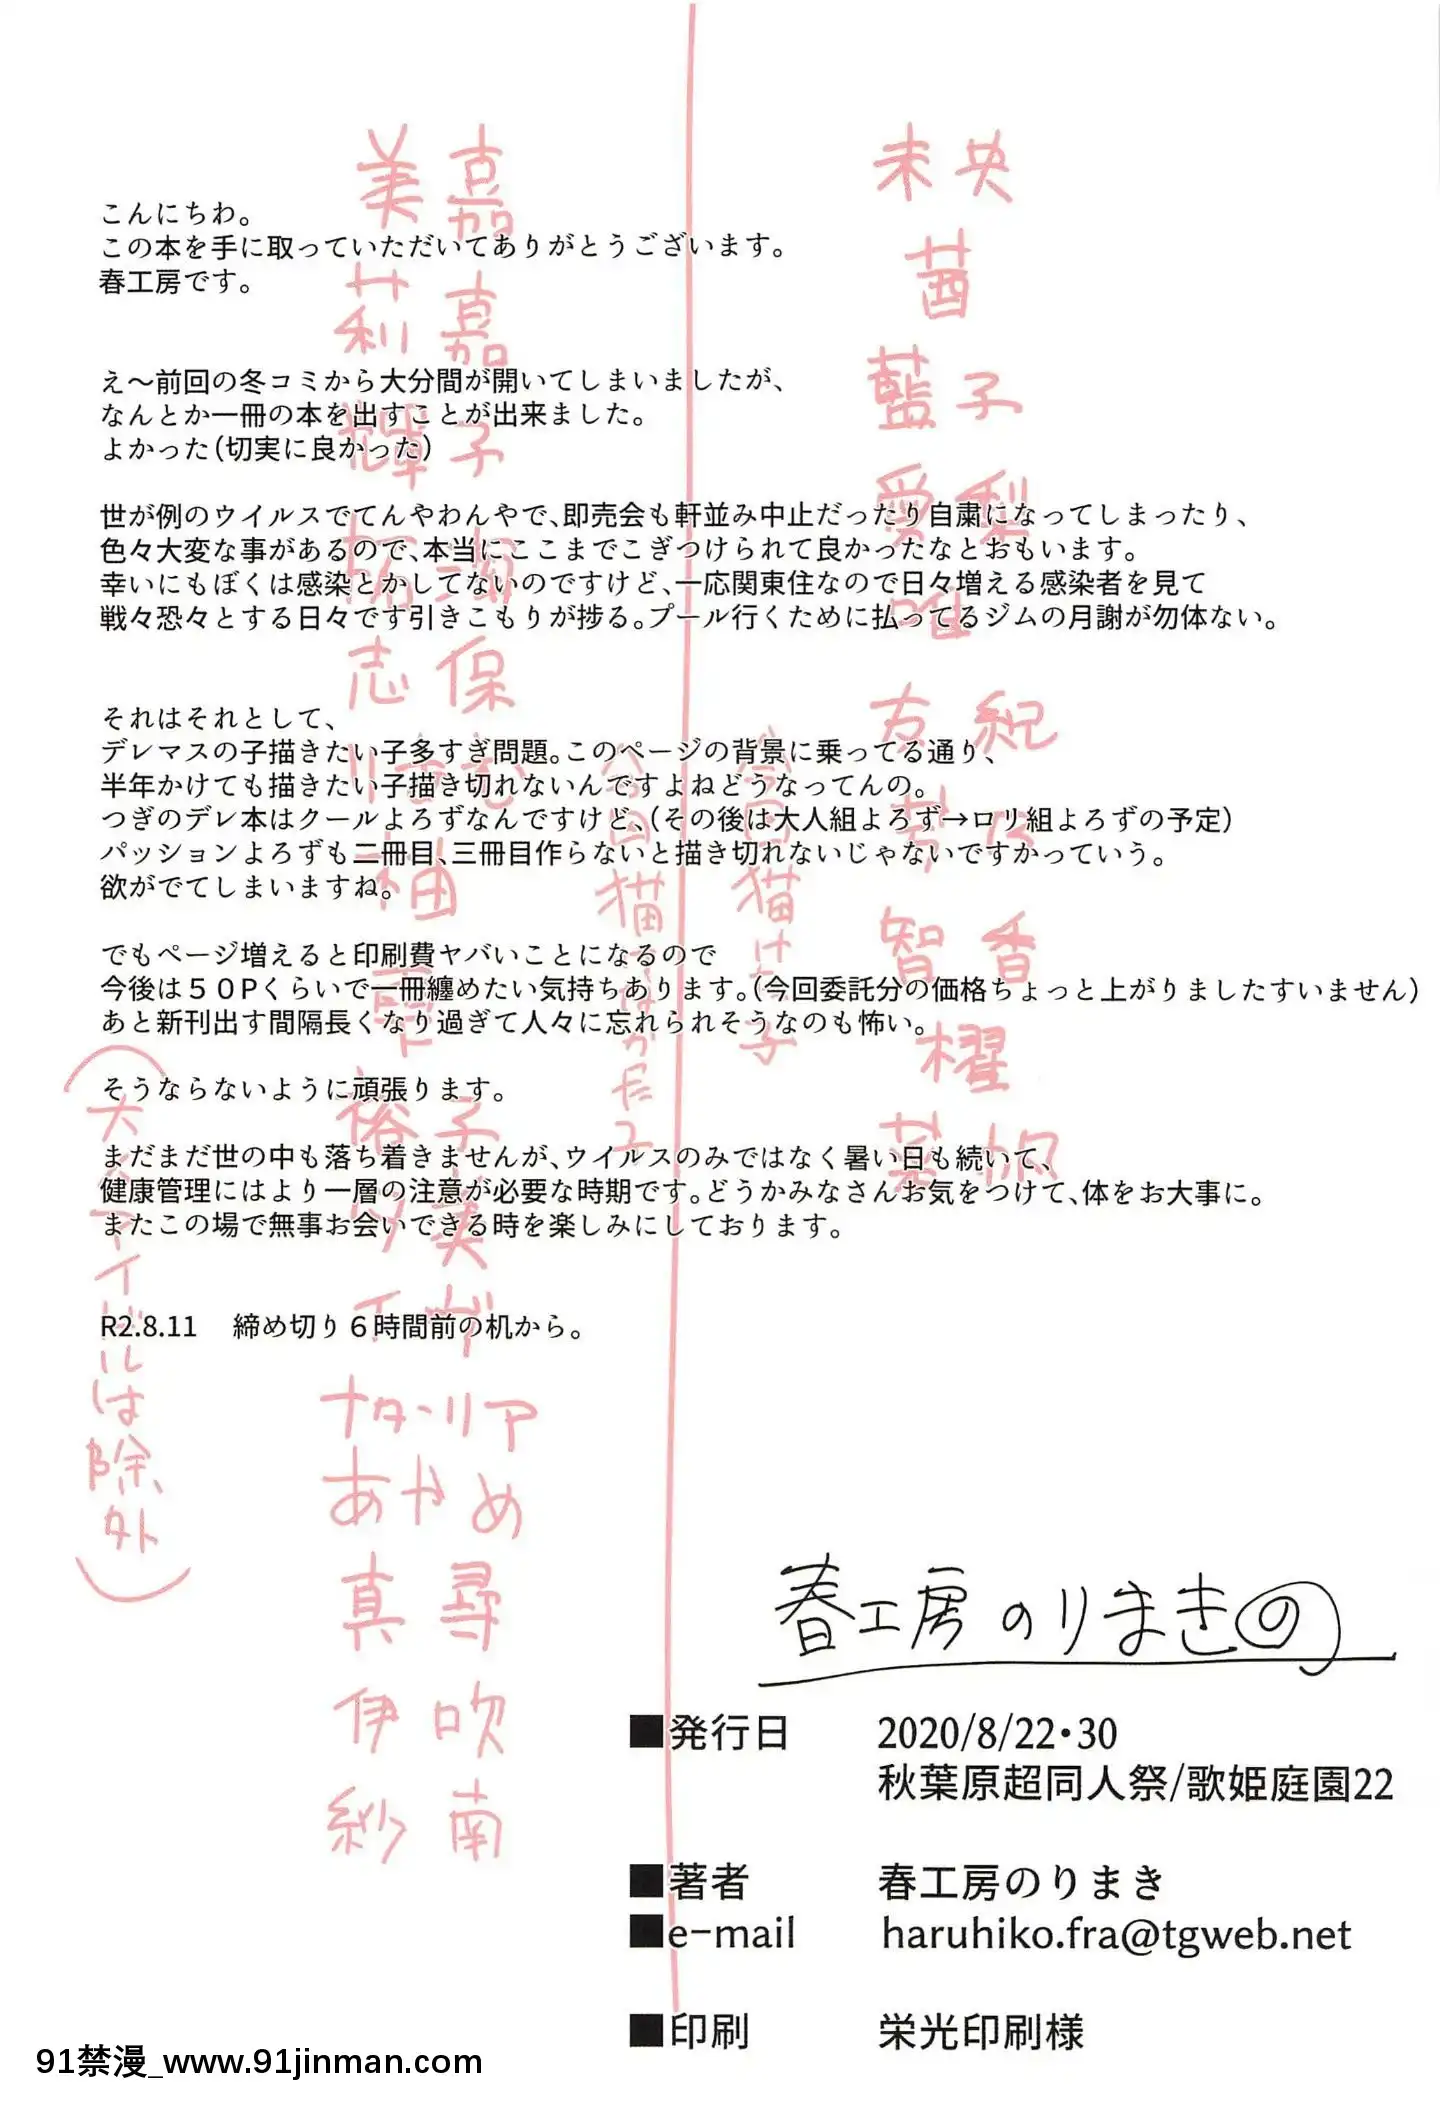 こんにちわ。
この本を手に取っていただいてありがとうございます。
春工房です。
え～前回の冬コミから大分間が開いてしまいましたが、
なんとか一冊の本を出すことが出来ました。
よかった(切実に良かった)
世が例のウイルスでてんやわんやで、即売会も軒並み中止だったり自粛になってしまったり、
色々大変な事があるので、本当にここまでこぎつけられて良かったなとおもいます。
幸いにもぼくは感染とかしてないのですけど、一応関東住なので日々増える感染者を見て
戦々恐々とする日々です引きこもりが捗る。プール行くために払ってるジムの月謝が勿体ない。
それはそれとして、
デレマスの子描きたい子多すぎ問題。このページの背景に乗ってる通り、
半年かけても描きたい子描き切れないんですよねどうなってんの。
つぎのデレ本はクールよろずなんですけど、(その後は大人組よろず→ロリ組よろずの予定)
パッションよろずも二冊目、三冊目作らないと描き切れないじゃないですかっていう。
欲がでてしまいますね。
でもページ増えると印刷費ヤバいことになるので
今後は５０Pくらいで一冊纏めたい気持ちあります。(今回委託分の価格ちょっと上がりましたすいません)
あと新刊出す間隔長くなり過ぎて人々に忘れられそうなのも怖い。
そうならないように頑張ります。
まだまだ世の中も落ち着きませんが、ウイルスのみではなく暑い日も続いて、
健康管理にはより一層の注意が必要な時期です。どうかみなさんお気をつけて、体をお大事に。
またこの場で無事お会いできる時を楽しみにしております。
R2.8.11 締め切り６時間前の机から。
未央
茜
藍子
愛梨
唯
友紀
芽乃
智香
櫂
菜帆
今回描けた子
美嘉
莉嘉
輝子
拓海
志保
柚
雫
裕子
ナターリア
あやめ
真尋
伊吹
紗南
春工房のりまき
■発行日 2020/8/22・30
秋葉原超同人祭/歌姫庭園22
■著者 春工房のりまき
■e-mail haruhiko.fra@tgweb.net
■印刷 栄光印刷様
91禁漫_www.91jinman.com